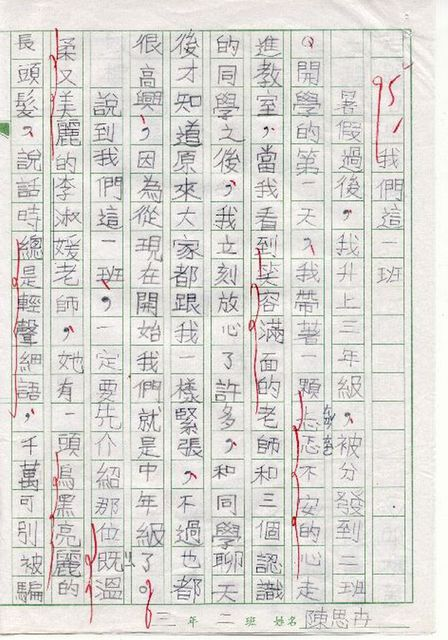 95
我們這一班
暑假過後，我升上三年級，被分發到二班
。開學的第一天，我帶著一顆忐忑不安的心走
進教室，當我看到笑容滿面的老師和三個認識
的同學之後，我立刻放心了許多，和同學聊天
後才知道原來大家都跟我一樣緊張，不過也都
很高興，因為從現在開始我們就是中年級了。
說到我們這一班，一定要先介紹那位既溫
柔又美麗的李淑媛老師，她有一頭烏黑亮麗的
長頭髮，說話時總是輕聲細語，千萬可別被騙
三年二班 姓名 陳思